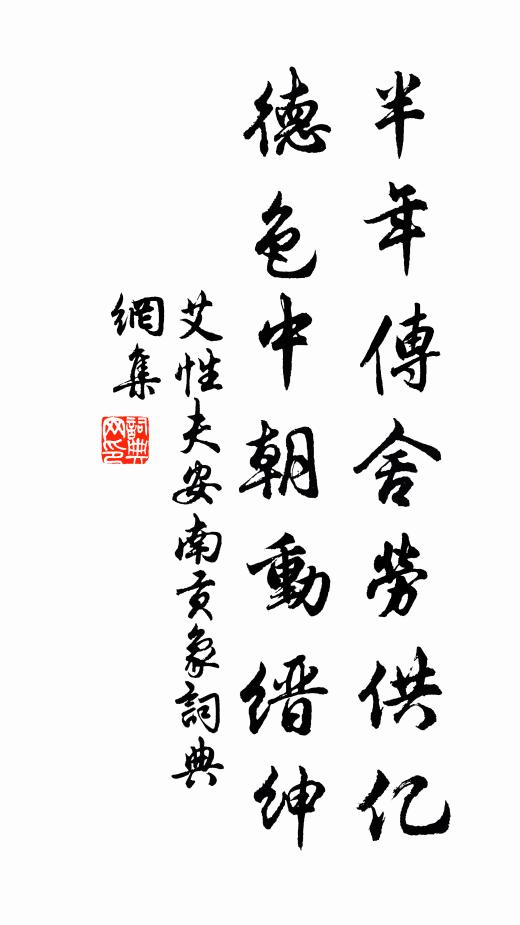 半年傳舍勞供亿
德色中朝動縉紳
艾性夫安南貢象詞典
網集
詞典網印